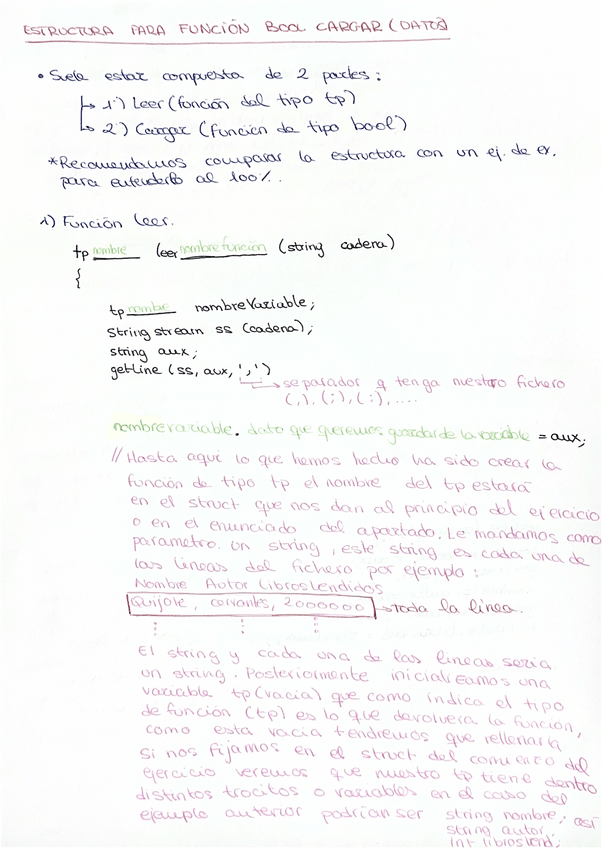 ESTRUCTURA PARA FUNCIÓN BOOL CARGAR (DATOS)
• Suele estar compuesta de 2 partes:
↳ 1º) Leer (función del tipo tp)
↳ 2º) Cargar (función de tipo bool)
*Recomendamos comparar la estructura con un ej. de ex.
para entenderlo al 100%.
1) Función leer.
tp nombre leer nombre función (string cadena)
{
tp nombre nombreVariable;
String stream ss (cadena);
string aux;
getline (ss, aux, ',')
→ separador q tenga nuestro fichero
(,), (;), (:), ....
nombrevariable. dato que queremos guardar de la variable = aux;
// Hasta aquí lo que hemos hecho ha sido crear la
función de tipo tp el nombre del tp estará
en el struct que nos dan al principio del ejercicio
o en el enunciado del apartado. Le mandamos como
parámetro un string, este string es cada una de
las líneas del fichero por ejemplo:
Nombre Autor LibrosVendidos
Quijote, cervantes, 2000000 → Toda la línea.
El string y cada una de las líneas sería
un string. Posteriormente inicializamos una
variable tp (vacía) que como indica el tipo
de función (tp) es lo que devolvera la función,
como esta vacía tendremos que rellenarla
si nos fijamos en el struct del comienzo del
ejercicio veremos que nuestro tp tiene dentro
distintos trocitos o variables en el caso del
ejemplo anterior podrían ser string nombre; así
string autor;
int librosVend;